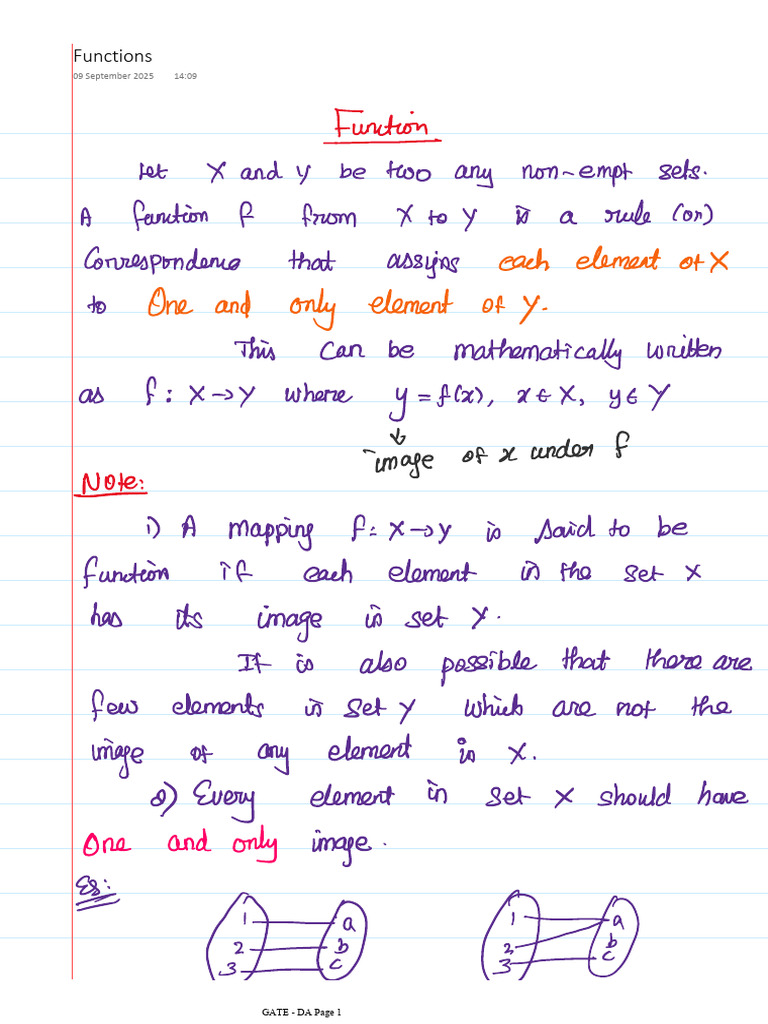 Functions
09 September 2025 14:09
Function
Let X and y be two any non-empt sets.
A function f from X to Y is a rule (or)
Correspondence that assigns each element of X
to One and only element of Y.
This can be mathematically written
as f : X → Y where y = f(x), x ∈ X, y ∈ Y
↓
image of x under f
Note:
i) A mapping f: X → y is said to be
function if each element in the set X
has its image in set Y.
If is also possible that there are
few elements in set Y which are not the
image of any element in X.
2) Every element in set X should have
One and only image.
Eg:
1 a 1 a
2 b 2 b
3 c 3 c
GATE - DA Page 1